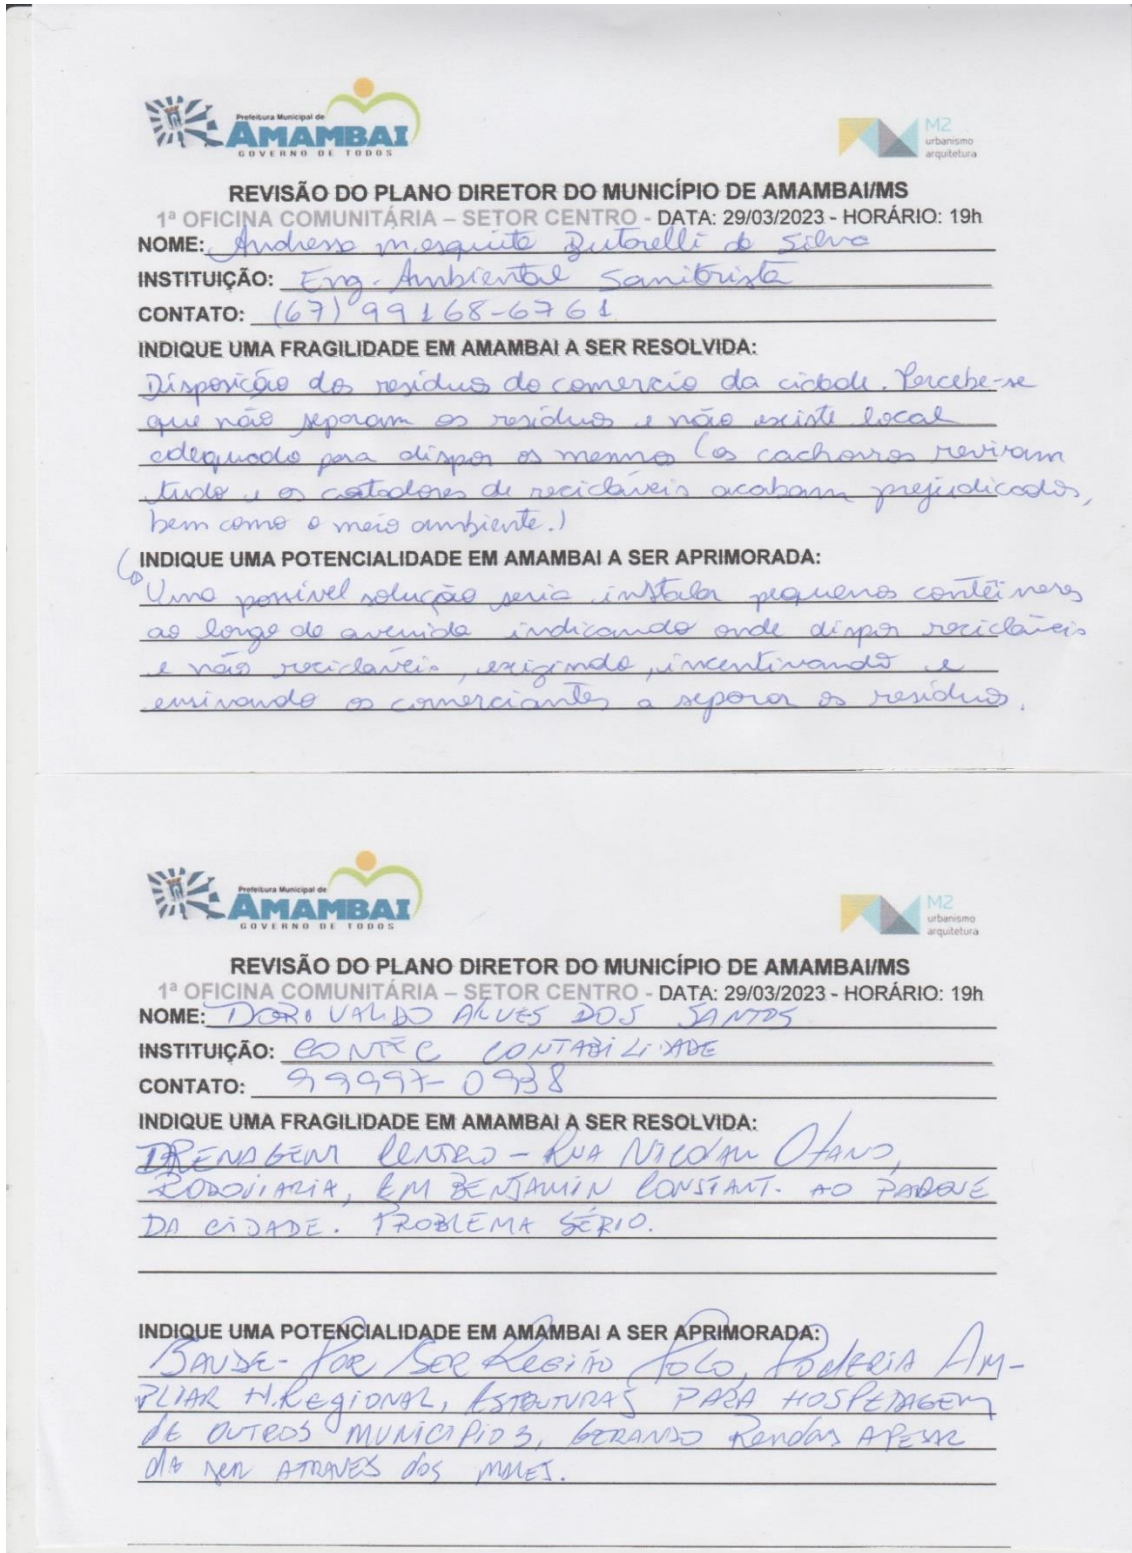 Prefeitura Municipal de
AMAMBAI
GOVERNO DE TODOS
M2
urbanismo
arquitetura
REVISÃO DO PLANO DIRETOR DO MUNICÍPIO DE AMAMBAI/MS
1ª OFICINA COMUNITÁRIA – SETOR CENTRO - DATA: 29/03/2023 - HORÁRIO: 19h
NOME: Andressa Mesquita da Silva
INSTITUIÇÃO: Eng. Ambiental Sanitarista
CONTATO: (67) 99168-6761
INDIQUE UMA FRAGILIDADE EM AMAMBAI A SER RESOLVIDA:
Disposição dos resíduos do comercio da cidade. Percebe-se
que não separam os resíduos e não existe local
adequado para dispor os mesmos (os cachorros reviram
tudo e os catadores de recicláveis acabam prejudicados,
bem como o meio ambiente.)
INDIQUE UMA POTENCIALIDADE EM AMAMBAI A SER APRIMORADA:
Uma possível solução seria instalar pequenos contêineres
ao longo da avenida indicando onde dispor recicláveis
e não recicláveis, exigindo, incentivando e
ensinando os comerciantes a separar os resíduos.
Prefeitura Municipal de
AMAMBAI
GOVERNO DE TODOS
M2
urbanismo
arquitetura
REVISÃO DO PLANO DIRETOR DO MUNICÍPIO DE AMAMBAI/MS
1ª OFICINA COMUNITÁRIA – SETOR CENTRO - DATA: 29/03/2023 - HORÁRIO: 19h
NOME: DORIVALDO ALVES DOS SANTOS
INSTITUIÇÃO: CONTEC CONTABILIDADE
CONTATO: 99997-0938
INDIQUE UMA FRAGILIDADE EM AMAMBAI A SER RESOLVIDA:
DRENAGEM CENTRO – RUA NICOLAU OTANO,
RODOVIARIA, EM BENJAMIN CONSTANT. AO PARQUE
DA CIDADE. PROBLEMA SÉRIO.
INDIQUE UMA POTENCIALIDADE EM AMAMBAI A SER APRIMORADA:
SAUDE- POR SER REGIÃO POLO, PODERIA AM-
PLIAR H.REGIONAL, ESTRUTURAS PARA HOSPEDAGEM
DE OUTROS MUNICIPIOS, GERANDO Rendas APESAR
de ser ATRAVES dos MALES.